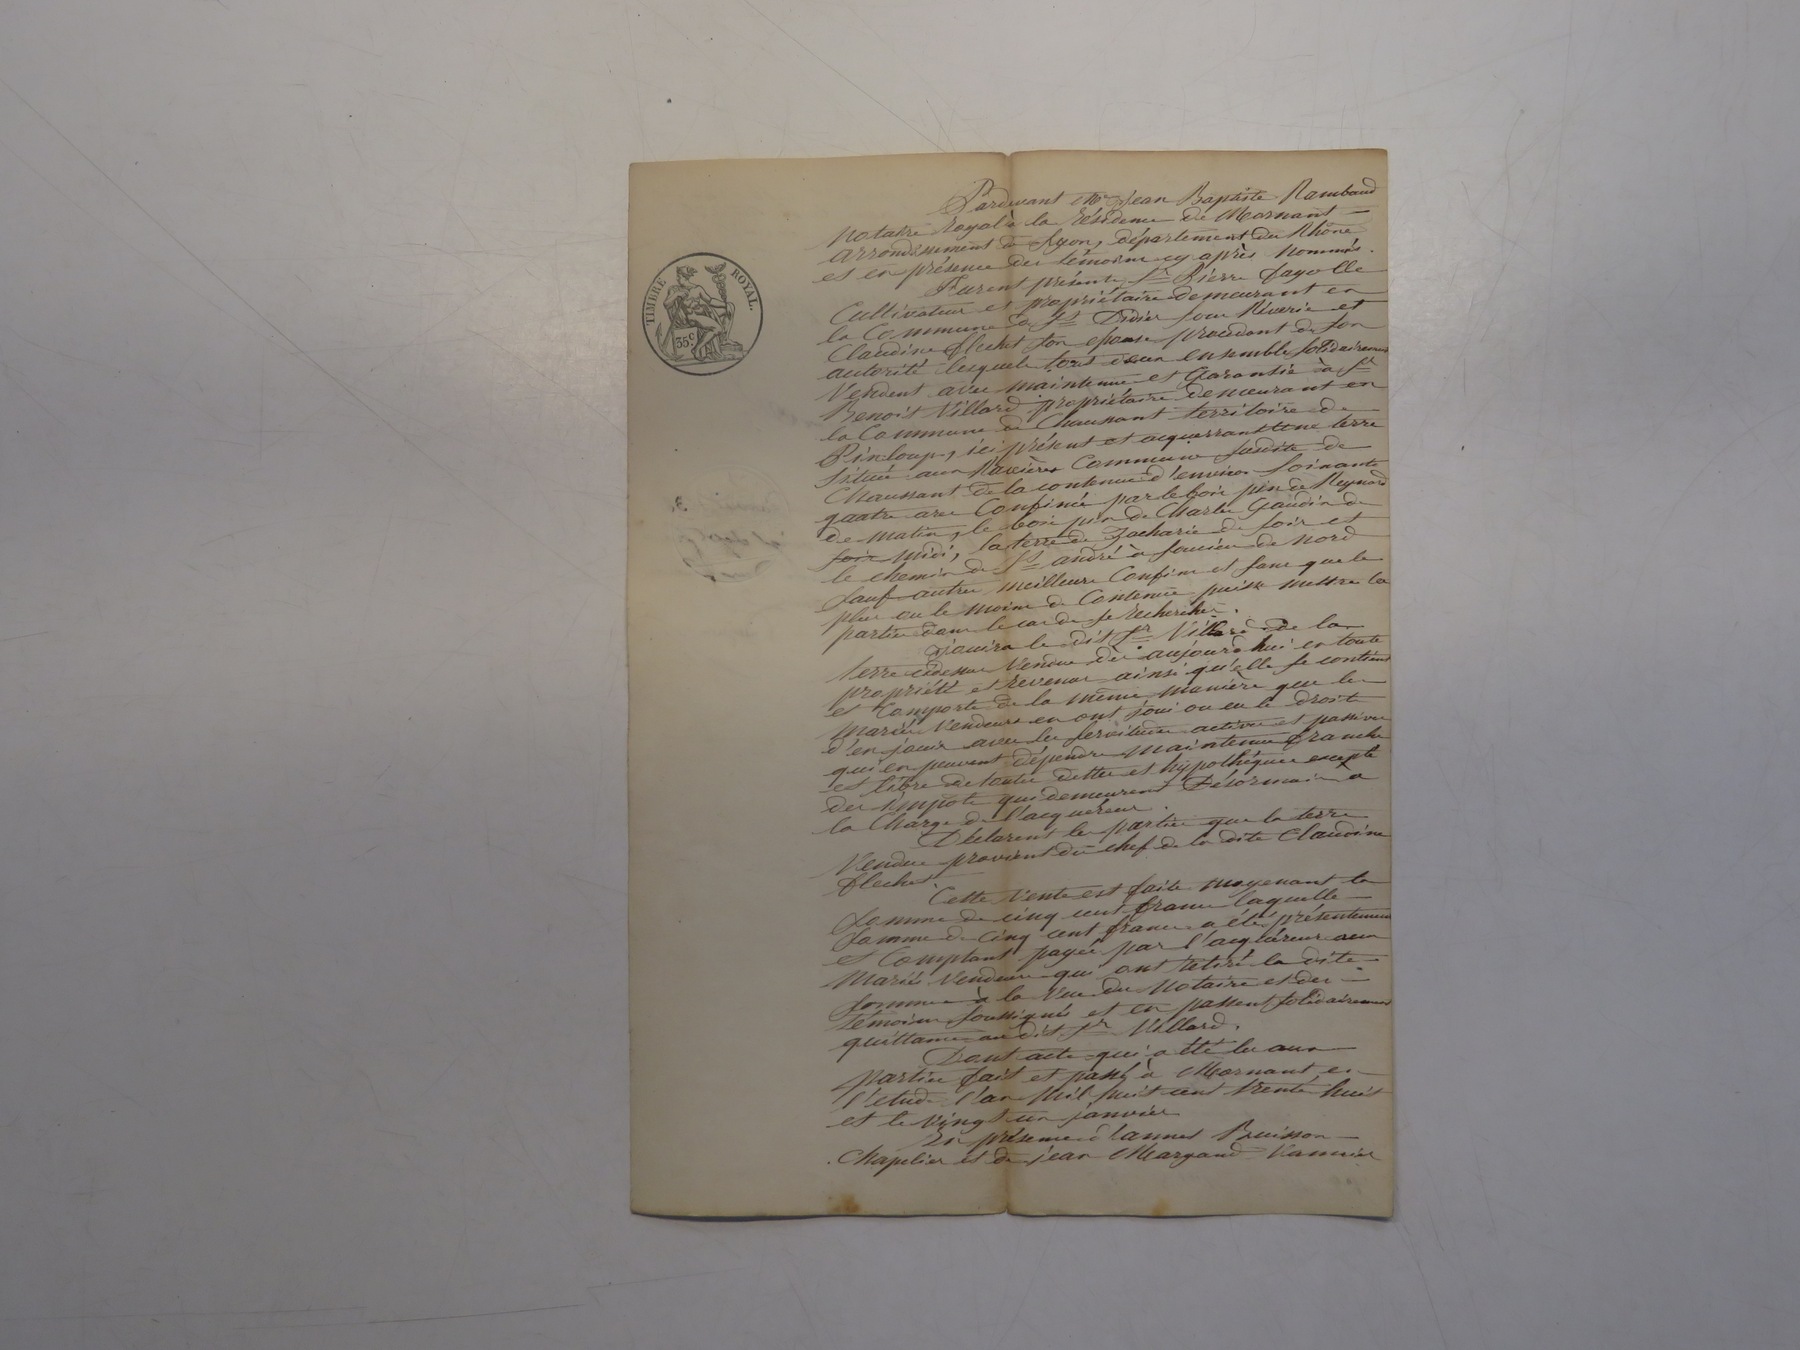 TIMBRE ROYAL.
35c
Pardevant Me Jean Baptiste Rambaud
Notaire Royal à la Résidence de Mornant
arrondissement de Lyon, département du Rhône
et en présence des témoins cy après nommés.
Furent présents Sr Pierre Fayolle
Cultivateur et propriétaire demeurant en
la Commune de St Didier sous Riverie et
Claudine Flechet son epouse procédant de son
autorité lesquels tous deux ensemble solidairement
Vendent avec maintenue et Garantie à Sr
Benoit Villard propriétaire demeurant en
la Commune de Chaussant territoire de
Pinloup, ici présent et acquerrant Une terre
située aux Ravières Commune susdite de
Chaussant de la contenue d'environ soixante
quatre ares Confinée par le bois pin de Reynard
de matin, le bois pin de Charles Gaudin de
soir midi, la terre de Zacharie de soir et
le chemin de St andré à soucieu de nord
sauf autres meilleurs Confins et sans que le
plus ou le moins de Contenue puisse mettre les
parties dans le cas de se rechercher.
Jouira le dit Sr Villard de la
terre cidessus Vendue dès aujourd'hui en toute
propriété et revenus ainsi qu'elle se contient
et Comporte de la même manière que les
mariés Vendeurs en ont joui ou eu le droit
d'en jouir avec les servitudes actives et passives
qui en peuvent dépendre maintenue franche
et libre de toutes dettes et hypothéques excepté
des impots qui demeurent Désormais a
la Charge de l'acquéreur.
Déclarent les parties que la terre
Vendue provient du chef de la dite Claudine
Flechet.
Cette Vente est faite moyenant la
somme de cinq cent francs laquelle
somme de cinq cent francs a été présentement
et Comptant payée par l'acquéreur aux
Mariés Vendeurs qui ont retiré la dite
somme à la Vue du Notaire et des
témoins soussignés et en passent solidairement
quittance au dit Sr Villard.
Dont acte qui a été lu aux
parties fait et passé à Mornant en
l'etude l'an Mil huit cent trente huit
et le vingt un janvier
En présence d' Buisson
Chapelier et de jean Margand Vannier